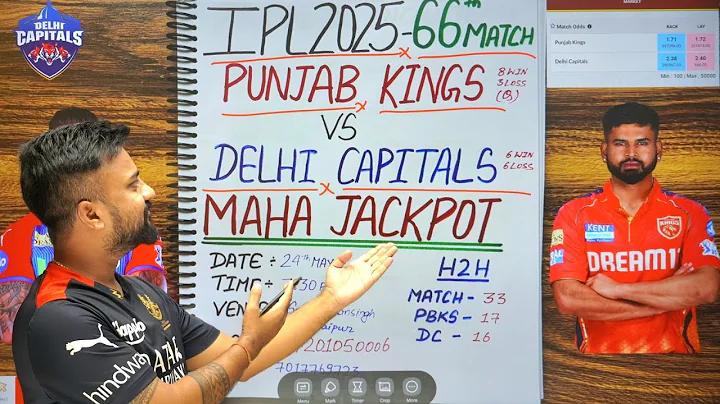 DELHI
CAPITALS
IPL 2025 - 66th MATCH
PUNJAB KINGS
8 WIN
5 LOSS
(Q)
VS
DELHI CAPITALS
6 WIN
6 LOSS
MAHA JACKPOT
DATE ÷ 24th MAY
TIME ÷
H2H
MATCH - 33
PBKS - 17
DC - 16
MARKET
Match Odds
BACK
LAY
Punjab Kings
1.71
1.72
Delhi Capitals
2.38
2.40
Min : 100 | Max : 50000
KENT
DREAM11
happilo
hindware
Menu
Mark
Timer
Crop
More